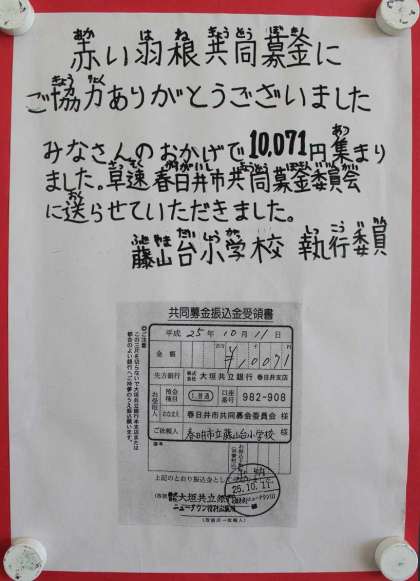 赤い羽根共同募金に
ご協力ありがとうございました
みなさんのおかげで10,071円集まり
ました。早速春日井市共同募金委員会
に送らせていただきました。
藤山台小学校 執行委員
共同募金振込金受領書
平成 25年 10月 11日
金額 ¥10071
先方銀行 株式会社 大垣共立銀行 春日井支店
お受取人 預金種目 1.普通 口座番号 982-908
おなまえ 春日井市共同募金委員会 様
ご依頼人 春日井市立藤山台小学校 様
上記のとおり振込金として
25.10.11
大垣共立銀
ご注意